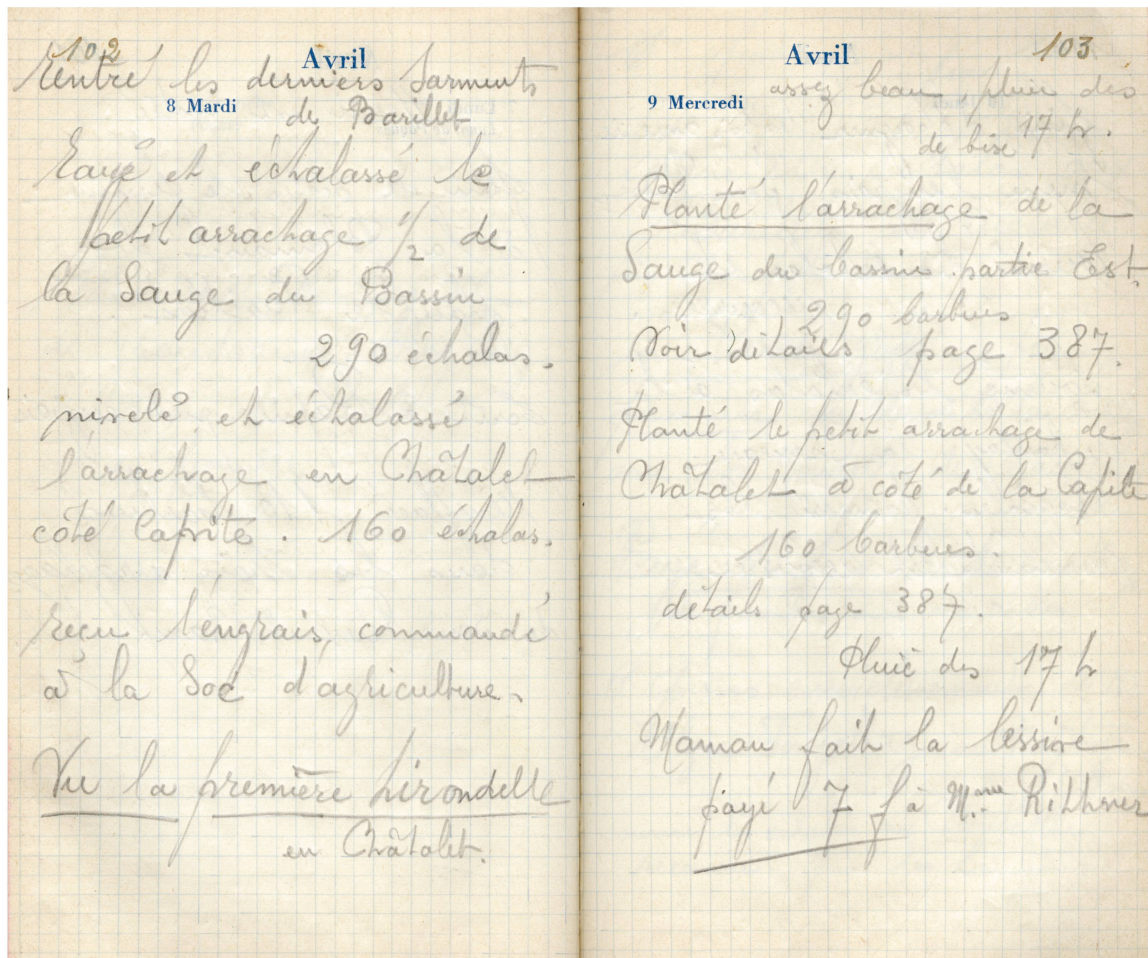 102
Avril
Rentré les derniers sarments
8 Mardi
de Barillet
Rayé et échalassé le
petit arrachage 1/2 de
la Sauge du Bassin
290 échalas.
nivelé et échalassé
l'arrachage en Châtalet
côté Capite. 160 échalas.
reçu l'engrais, commandé
à la Soc d'agriculture.
Vu la première hirondelle
en Châtalet.
103
Avril
9 Mercredi
assez beau, pluie dès
de bise 17 h.
Planté l'arrachage de la
Sauge du bassin partie Est.
290 barbues
Voir détails page 387.
Planté le petit arrachage de
Châtalet à côté de la Capite
160 barbues.
détails page 387.
Pluie dès 17 h
Maman fait la lessive
payé 7 f à Mme